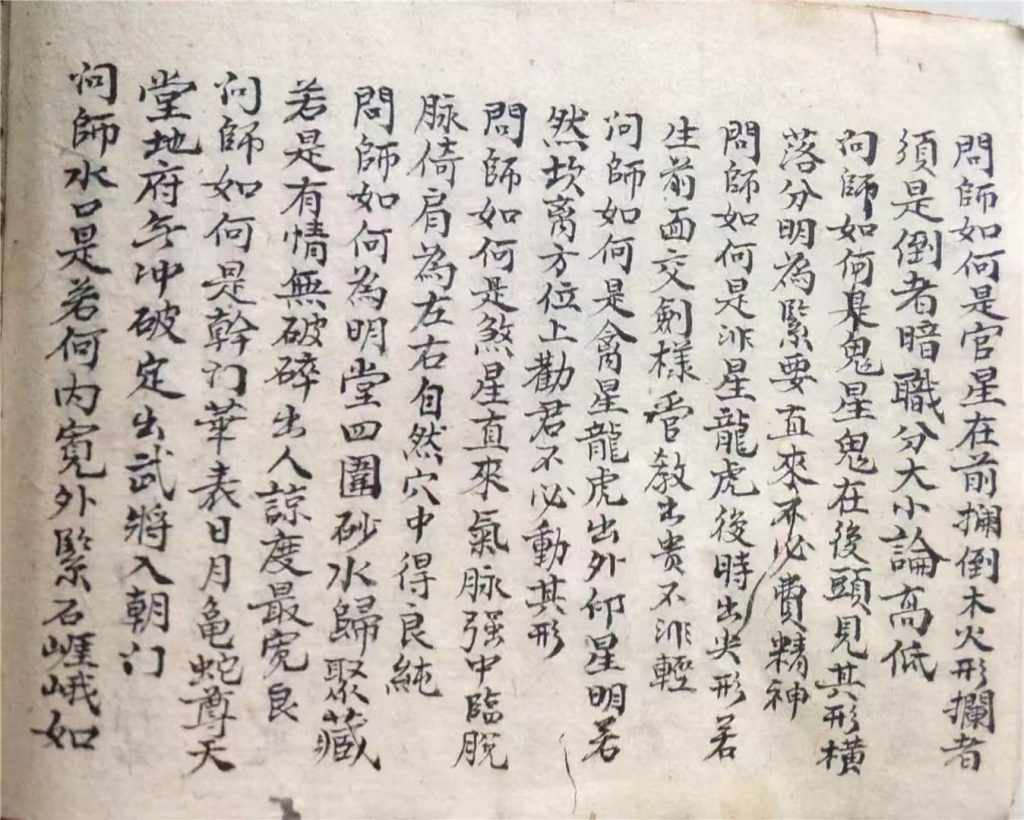 問師如何是官星在前攔倒木火形攔者
須是倒者暗職分大小論高低
问師如何是鬼星鬼在後頭見其形橫
落分明為緊要直來不必費精神
問師如何是非星龍虎後時出尖形若
生前面交劍樣管教出貴不非輕
问師如何是禽星龍虎出外仰星明若
然坎离方位上勸君不必動其形
問師如何是煞星直來氣脉强中臨脫
脉倚肩為左右自然穴中得良純
問師如何為明堂四圍砂水歸聚藏
若是有情無破碎出人諒度最宽良
问師如何是幹门華表日月龟蛇尊天
堂地府无冲破定出武將入朝门
问師水口是若何内寬外緊石崕峨如